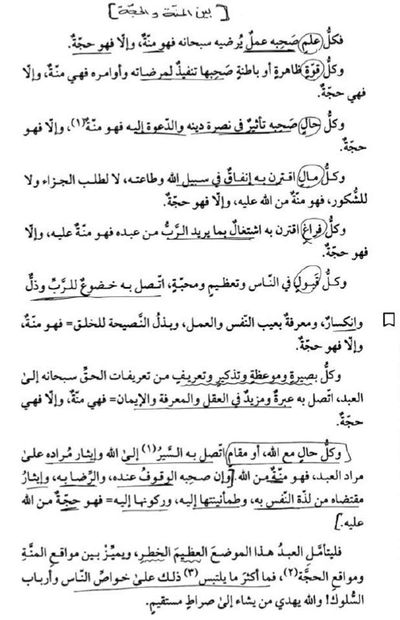 [بين المنّة والحجّة]
فكلُّ علمٍ صَحِبه عملٌ يُرضيه سبحانه فهو مِنّةٌ، وإلّا فهو حجّةٌ.
وكلُّ قوّةٍ ظاهرةٍ أو باطنةٍ صَحِبها تنفيذٌ لمرضاته وأوامره فهي منّةٌ، وإلّا
فهي حجّةٌ.
وكلُّ حالٍ صَحِبه تأثيرٌ في نصرة دينه والدّعوة إليه فهو منّةٌ(١)، وإلّا فهو
حجّةٌ.
وكلُّ مالٍ اقترن به إنفاقٌ في سبيل الله وطاعته، لا لطلب الجزاء ولا
للشُّكور، فهو منّةٌ من الله عليه، وإلّا فهو حجّةٌ.
وكلُّ فراغٍ اقترن به اشتغالٌ بما يريد الرَّبُّ من عبده فهو منّةٌ عليه، وإلّا
فهو حجّةٌ.
وكلُّ قبولٍ في النّاس وتعظيمٍ ومحبّةٍ، اتّصل به خضوعٌ للرَّبِّ وذلٌّ
وانكسارٌ، ومعرفةٌ بعيب النّفس والعمل، وبذلُ النّصيحة للخلق= فهو منّةٌ،
وإلّا فهو حجّةٌ.
وكلُّ بصيرةٍ وموعظةٍ وتذكيرٍ وتعريفٍ من تعريفات الحقِّ سبحانه إلى
العبد، اتّصل به عبرةٌ ومزيدٌ في العقل والمعرفة والإيمان= فهي منّةٌ، وإلّا فهي
حجّةٌ.
وكلُّ حالٍ مع الله، أو مقامٍ اتّصل به السَّيرُ(١) إلى الله وإيثار مُراده على
مراد العبد، فهو منّةٌ من الله. [وإن صحبه الوقوفُ عنده، والرِّضا به، وإيثارُ
مقتضاه من لذّة النّفس به، وطمأنينتها إليه، وركونها إليه= فهو حجّةٌ من الله
عليه.]
فليتأمّل العبدُ هذا الموضعَ العظيمَ الخطرِ، ويميِّزْ بين مواقع المنّة
ومواقع الحجّة(٢)، فما أكثرَ ما يلتبس(٣) ذلك على خواصِّ النّاس وأرباب
السُّلوك! والله يهدي من يشاء إلى صراطٍ مستقيمٍ.